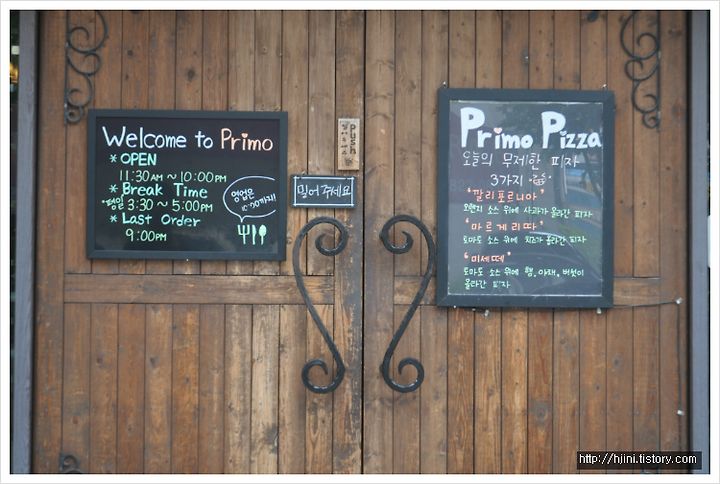 Welcome to Primo
* OPEN
11:30 AM ~ 10:00 PM
* Break Time
평일 3:30 ~ 5:00 PM
* Last Order
9:00 PM
영업은
10:00까지!
PUSH
밀어주세요
Primo Pizza
오늘의 무제한 피자
3가지
"깔리포르니아"
오렌지 소스 위에 사과가 올라간 피자
"마르게리따"
토마토 소스 위에 치즈가 올라간 피자
"미세떼"
토마토 소스 위에 햄, 야채, 버섯이
올라간 피자
http://hjini.tistory.com